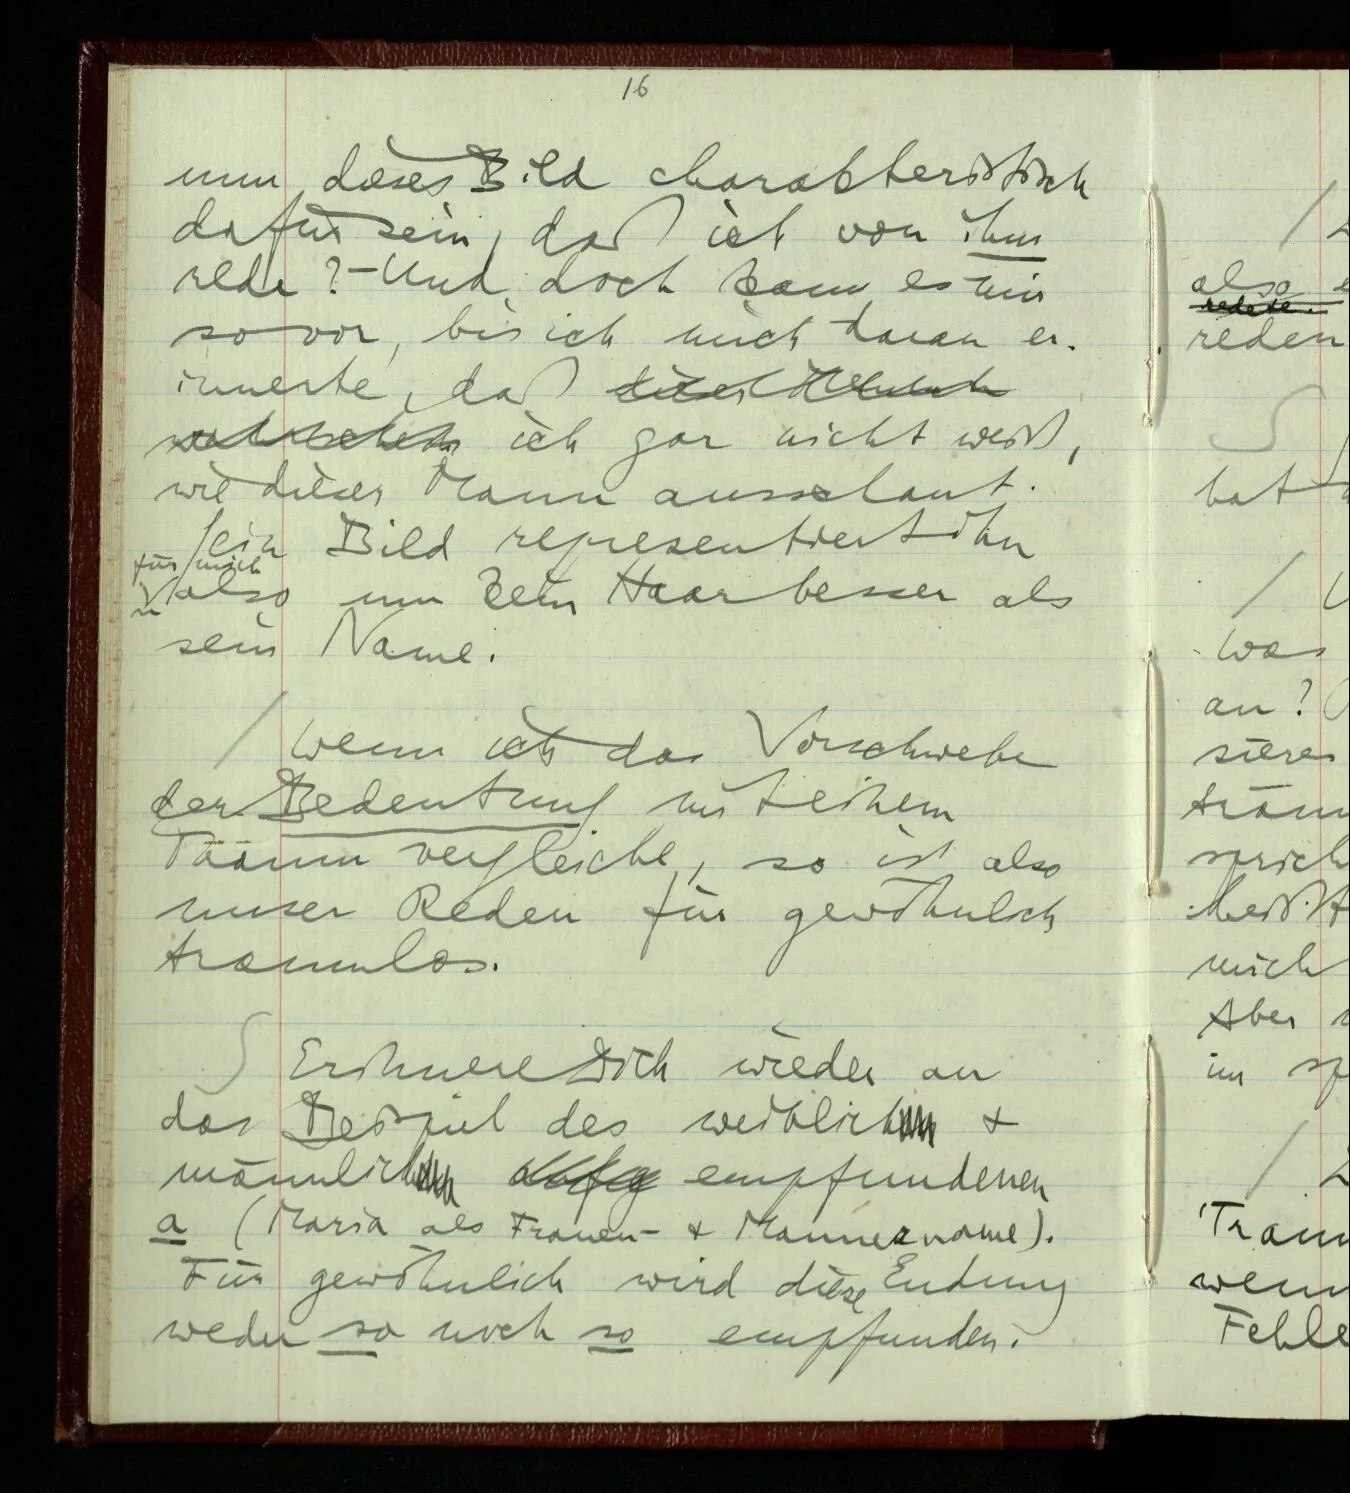 16
nun dieses Bild charakteristisch
dafür sein, daß ich von ihm
rede? – Und doch kam es mir
so vor, bis ich mich daran er-
innerte, daß
ich gar nicht weiß,
wie dieser Mann ausschaut.
Sein Bild representiert ihn
für mich
also um kein Haar besser als
sein Name.
/ Wenn ich das Vorschweben
der Bedeutung mit einem
Traum vergleiche, so ist also
unser Reden für gewöhnlich
traumlos.
S Erinnere Dich wieder an
das Beispiel des weiblich &
männlich empfundenen
a (Maria als Frauen- & Männername).
Für gewöhnlich wird diese Endung
weder so noch so empfunden.
/
also
redete.
reden
S
hat
/
Was
an?
sieren
träum
sprich
heißt
mich
Aber
im sp
/
'Traum
wenn
Fehle